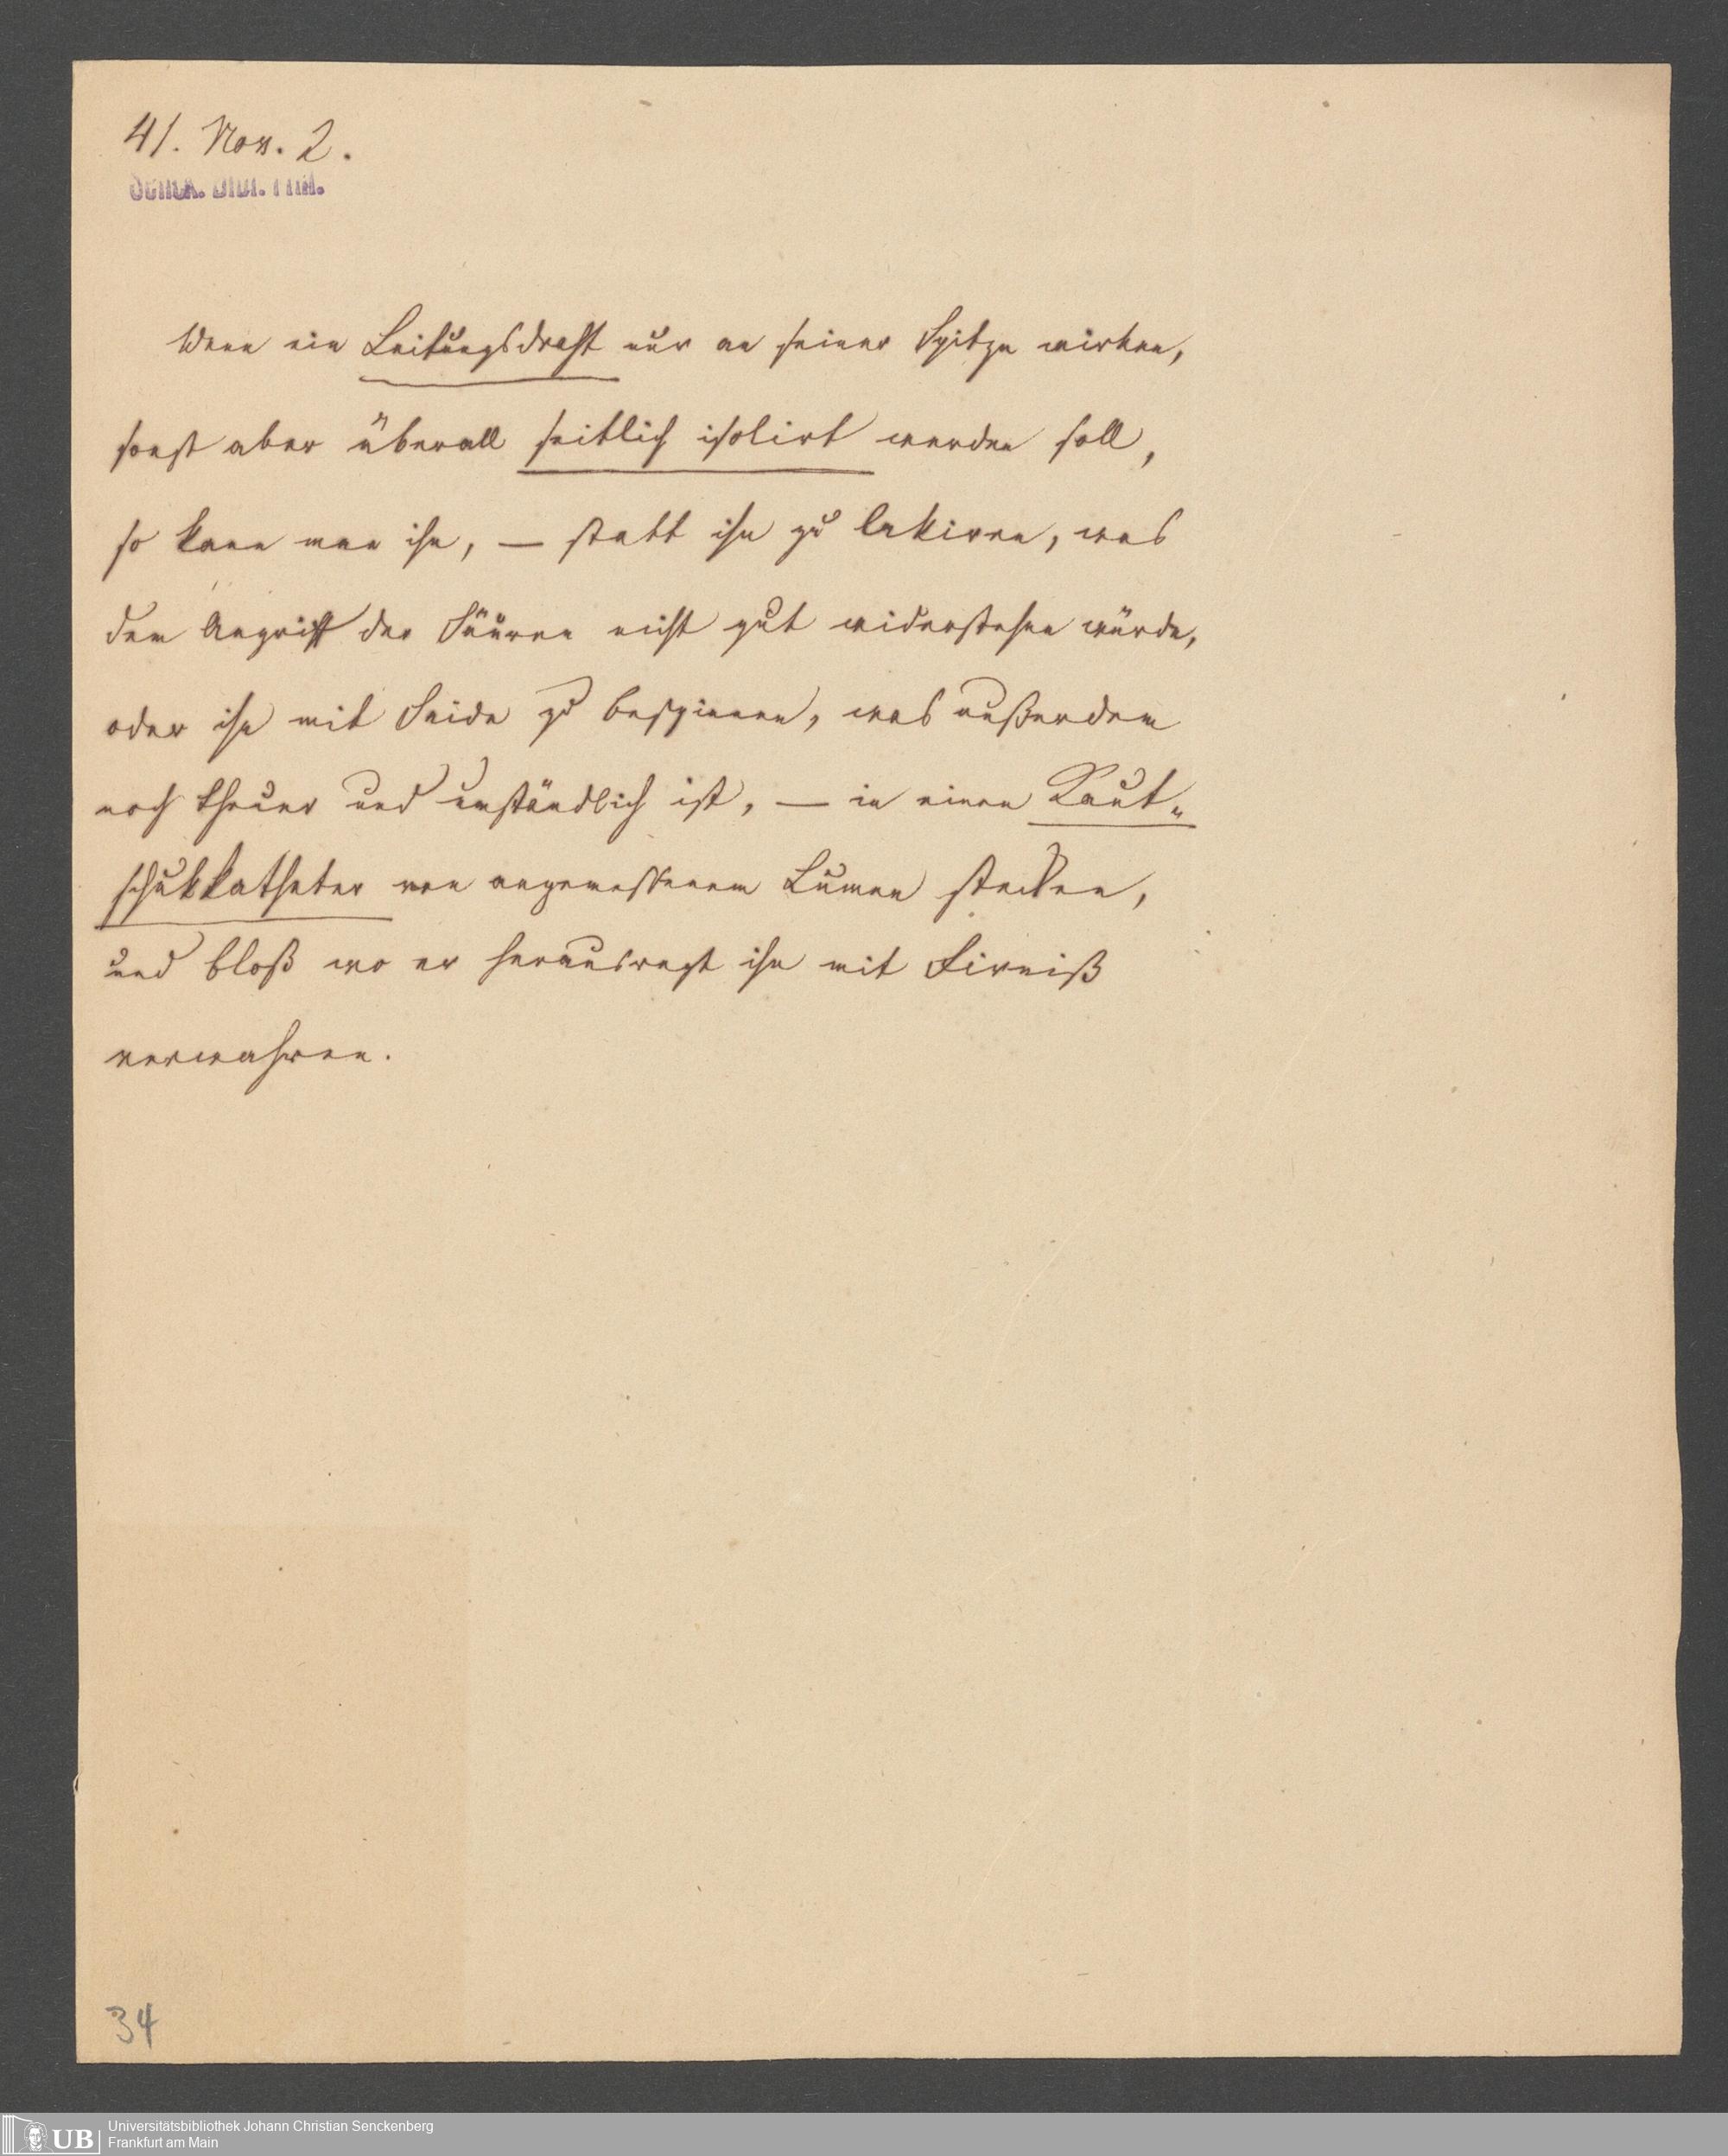 41. Nov. 2.
Senck. Bibl. Ffm.
Wenn ein Leitungsdraht nur an seiner Spitze wirken,
sonst aber überall seitlich isolirt werden soll,
so kann man ihn, — statt ihn zu lakiren, was
dem Angriff der Säuren nicht gut widerstehen würde,
oder ihn mit Seide zu bespinnen, was außerdem
noch theuer und umständlich ist, — in einen Kaut-
schukkatheter von angemessenem Lumen stecken,
und bloß wo er herausragt ihn mit Firniß
verwahren.
34
UB Universitätsbibliothek Johann Christian Senckenberg
Frankfurt am Main